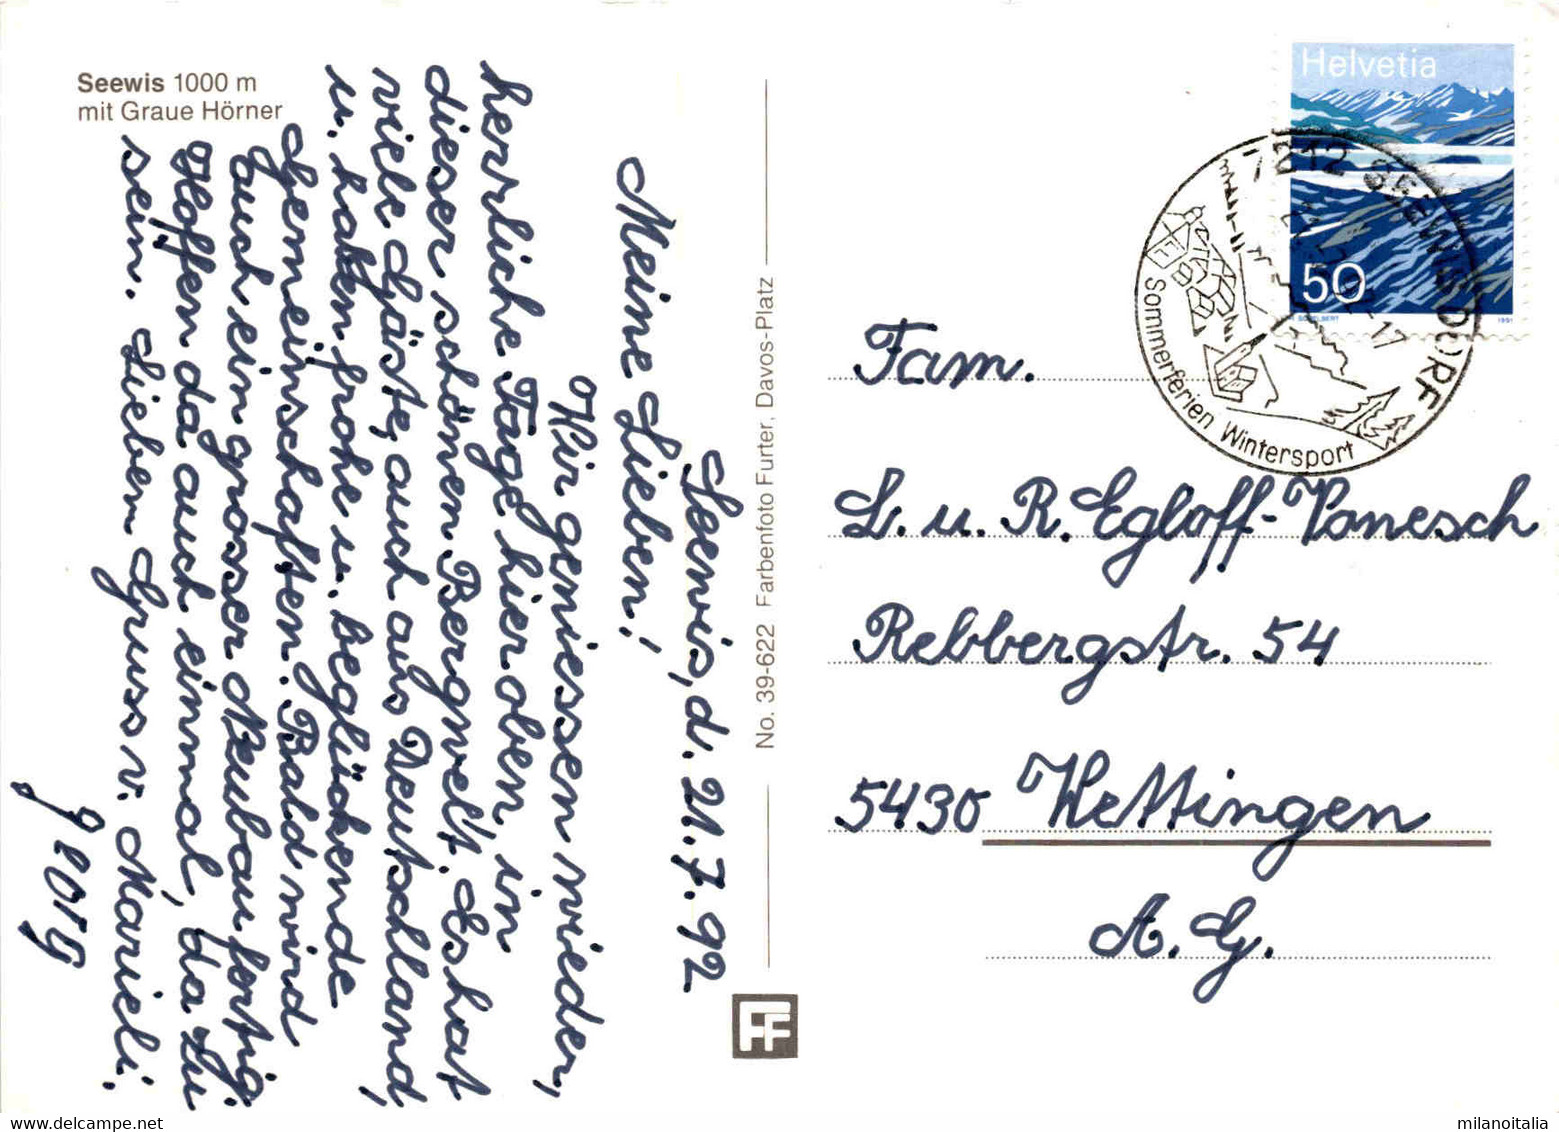 Seewis 1000 m
mit Graue Hörner
Seewis, d. 21.7.92
Meine Lieben!
Wir geniessen wieder,
herrliche Tage hier oben, in
dieser schönen Bergwelt. Es hat
viele Gäste, auch aus Deutschland,
u. haben frohe u. beglückende
Gemeinschaften. Bald wird
auch ein grosser Neubau fertig.
Hoffen da auch einmal, da zu
sein. Lieben Gruss v. Marieli.
Georg
No. 39-622 Farbenfoto Furter, Davos-Platz
FF
Helvetia
50
1991
SEEWIS DORF
Sommerferien Wintersport
Fam.
L. u. R. Egloff-Vonesch
Rebbergstr. 54
5430 Wettingen
A.G.
milanoitalia